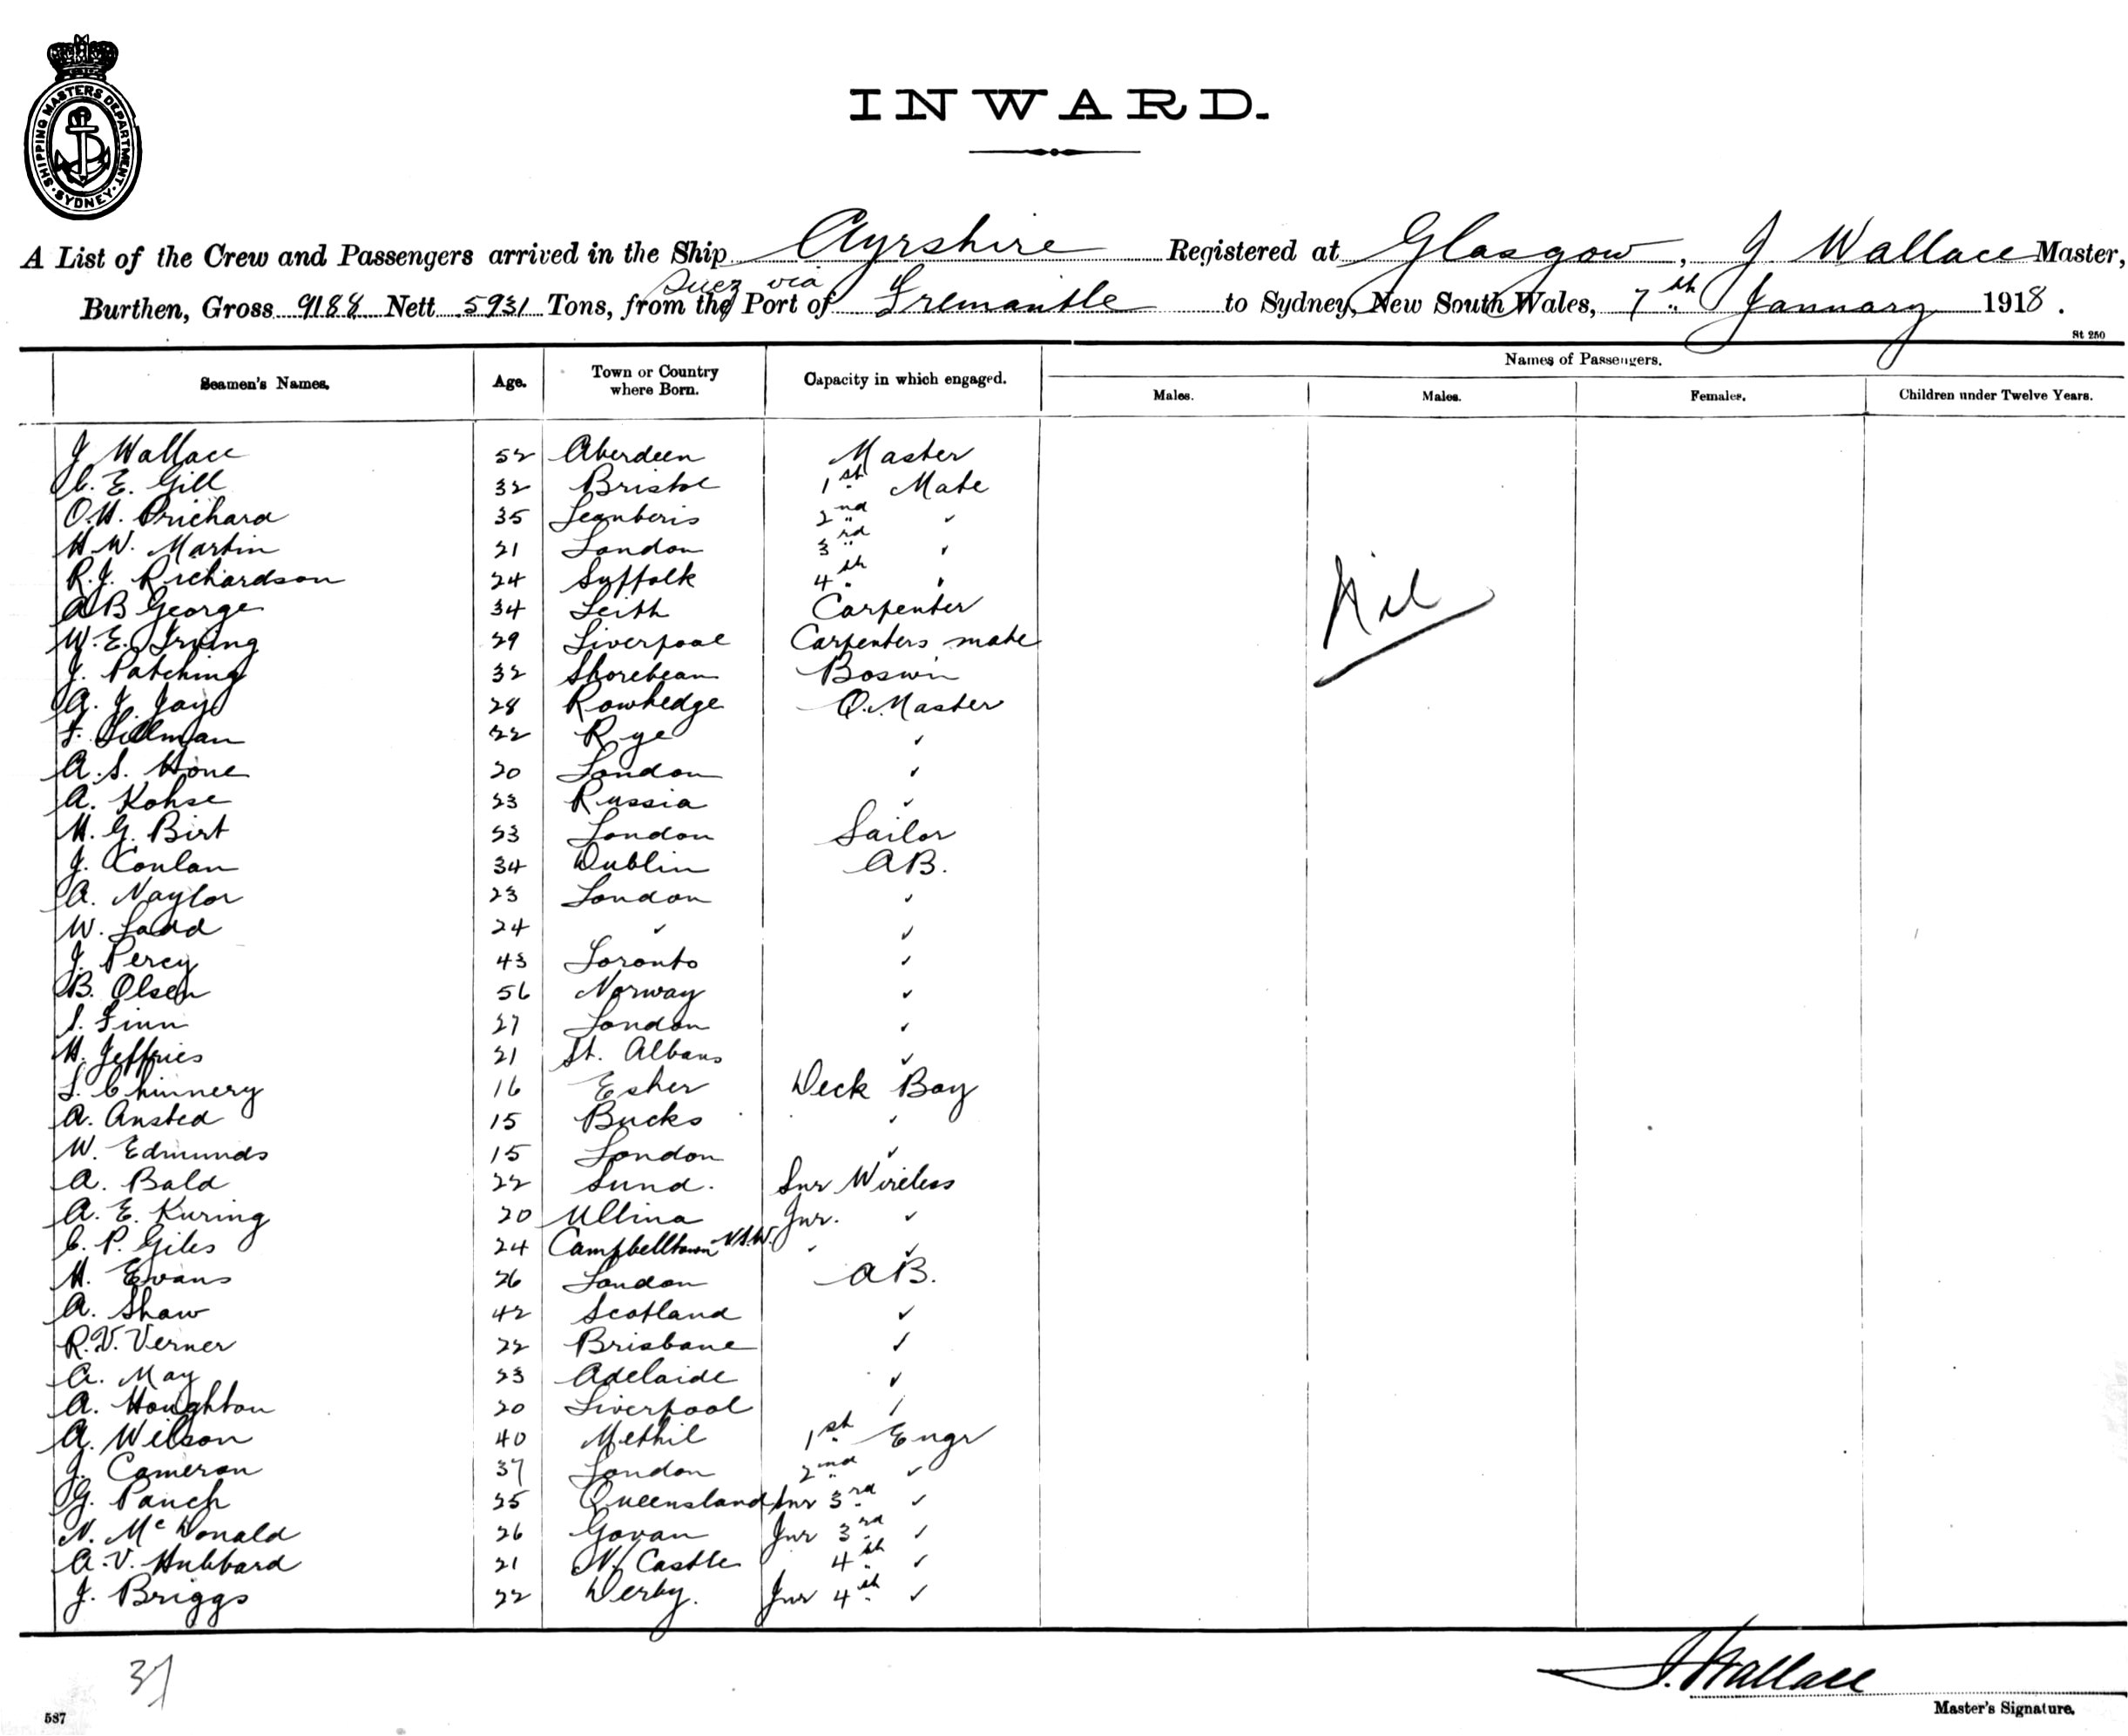 SHIPPING MASTERS DEPARTMENT. SYDNEY
INWARD.
A List of the Crew and Passengers arrived in the Ship Ayrshire Registered at Glasgow, J Wallace Master,
Suez via
Burthen, Gross 9188 Nett 5931 Tons, from the Port of Fremantle to Sydney, New South Wales, 7th January 1918.
St 250
Seamen's Names. Age. Town or Country where Born. Capacity in which engaged. Names of Passengers.
Males. Males. Females. Children under Twelve Years.
J Wallace 52 Aberdeen Master
C. E. Gill 32 Bristol 1st Mate
O.H. Prichard 35 Leanberis 2nd ✓
H.W. Martin 21 London 3rd ✓
R.J. Richardson 24 Suffolk 4th ✓
A B George 34 Leith Carpenter
Nil
W.E. Irving 29 Liverpool Carpenters mate
J. Patching 32 Shorebeam Boswin
A. J. Jay 28 Rowhedge Q.Master
F. Tillman 22 Rye ✓
A.S. Hone 20 London ✓
A. Kohse 23 Russia ✓
H. G. Birt 23 London Sailor
J. Conlan 34 Dublin AB.
A. Naylor 23 London ✓
W. Ladd 24 ✓ ✓
J. Percy 43 Toronto ✓
B. Olsen 56 Norway ✓
S. Finn 27 London ✓
H. Jeffries 21 St. Albans ✓
L. Chinnery 16 Esher Deck Boy
A. Ansted 15 Bucks ✓
W. Edmunds 15 London ✓
A. Bald 22 Sund. Snr Wireless
A. E. Kuring 20 Ullina Jnr. ✓
C. P. Giles 24 Campbelltown N.S.W. ✓ ✓
H. Evans 26 London AB.
A. Shaw 42 Scotland ✓
R.V. Verner 22 Brisbane ✓
A. May 23 Adelaide ✓
A. Houghton 20 Liverpool ✓
A. Wilson 40 Methil 1st Engr
J. Cameron 37 London 2nd ✓
G. Panch 25 Queensland Snr 3rd ✓
N. McDonald 26 Govan Jnr 3rd ✓
A.V. Hubbard 21 N/Castle 4th ✓
J. Briggs 22 Derby. Jnr 4th ✓
37
J. Wallace
Master's Signature.
587